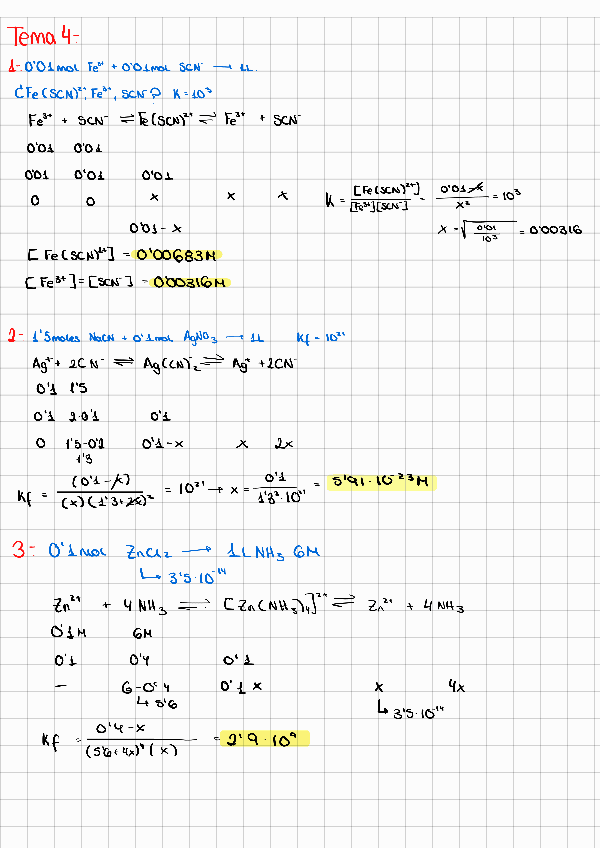 Tema 4:
1- 0'01 mol Fe³⁺ + 0'01 mol SCN⁻ → 1L.
¿Fe(SCN)²⁺, Fe³⁺, SCN⁻? K = 10³
Fe³⁺ + SCN⁻ ⇌ Fe(SCN)²⁺ ⇌ Fe³⁺ + SCN⁻
0'01 0'01
0'01 0'01 0'01
0 0 x x x
0'01 - x
K = [Fe(SCN)²⁺] / [Fe³⁺][SCN⁻] = 0'01-x / x² = 10³
x = √(0'01 / 10³) = 0'00316
[Fe(SCN)²⁺] = 0'00683M
[Fe³⁺] = [SCN⁻] = 0'00316M
2- 1'5 moles NaCN + 0'1 mol AgNO₃ → 1L Kf = 10²¹
Ag⁺ + 2CN⁻ ⇌ Ag(CN)₂⁻ ⇌ Ag⁺ + 2CN⁻
0'1 1'5
0'1 2·0'1 0'1
0 1'5-0'2 0'1-x x 2x
1'3
Kf = (0'1-x) / (x)(1'3+2x)² = 10²¹ → x = 0'1 / 1'3²·10²¹ = 5'91·10⁻²³M
3- 0'1 mol ZnCl₂ → 1L NH₃ 6M
↳ 3'5·10⁻¹⁴
Zn²⁺ + 4NH₃ ⇌ [Zn(NH₃)₄]²⁺ ⇌ Zn²⁺ + 4NH₃
0'1M 6M
0'1 0'4 0'1
— 6-0'4 0'1 x x 4x
↳ 5'6 ↳ 3'5·10⁻¹⁴
Kf = 0'4-x / (5'6+4x)⁴(x) = 2'9·10⁹